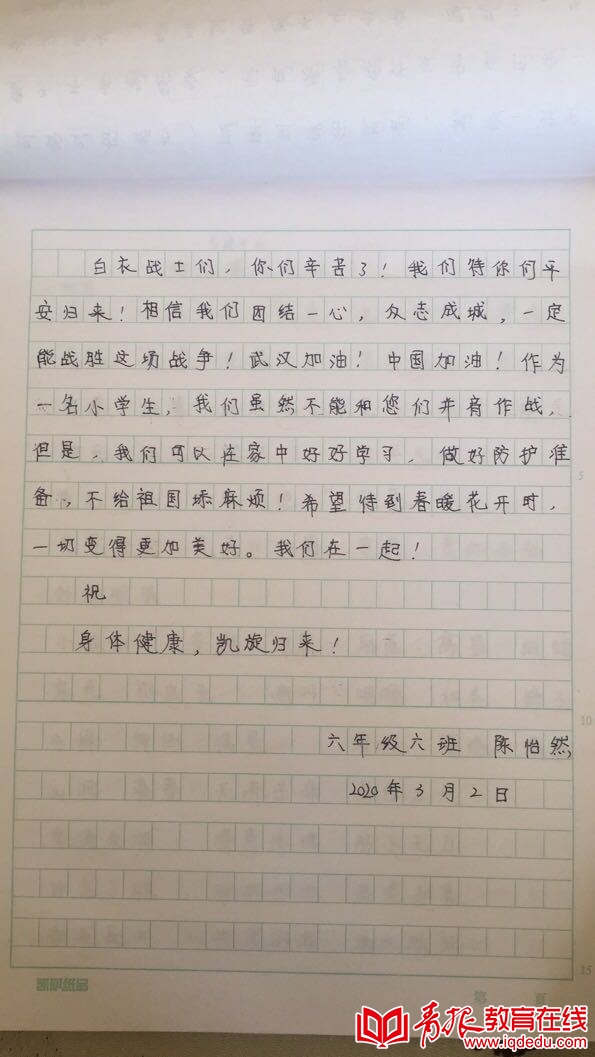 白衣战士们，你们辛苦了！我们待你们平
安归来！相信我们团结一心，众志成城，一定
能战胜这场战争！武汉加油！中国加油！作为
一名小学生，我们虽然不能和您们并肩作战，
但是，我们可以在家中好好学习，做好防护准
备，不给祖国添麻烦！希望待到春暖花开时，
一切变得更加美好。我们在一起！
祝
身体健康，凯旋归来！
六年级六班 陈怡然
2020年3月2日
5
10
15
第 页
青报教育在线
www.iqdedu.com